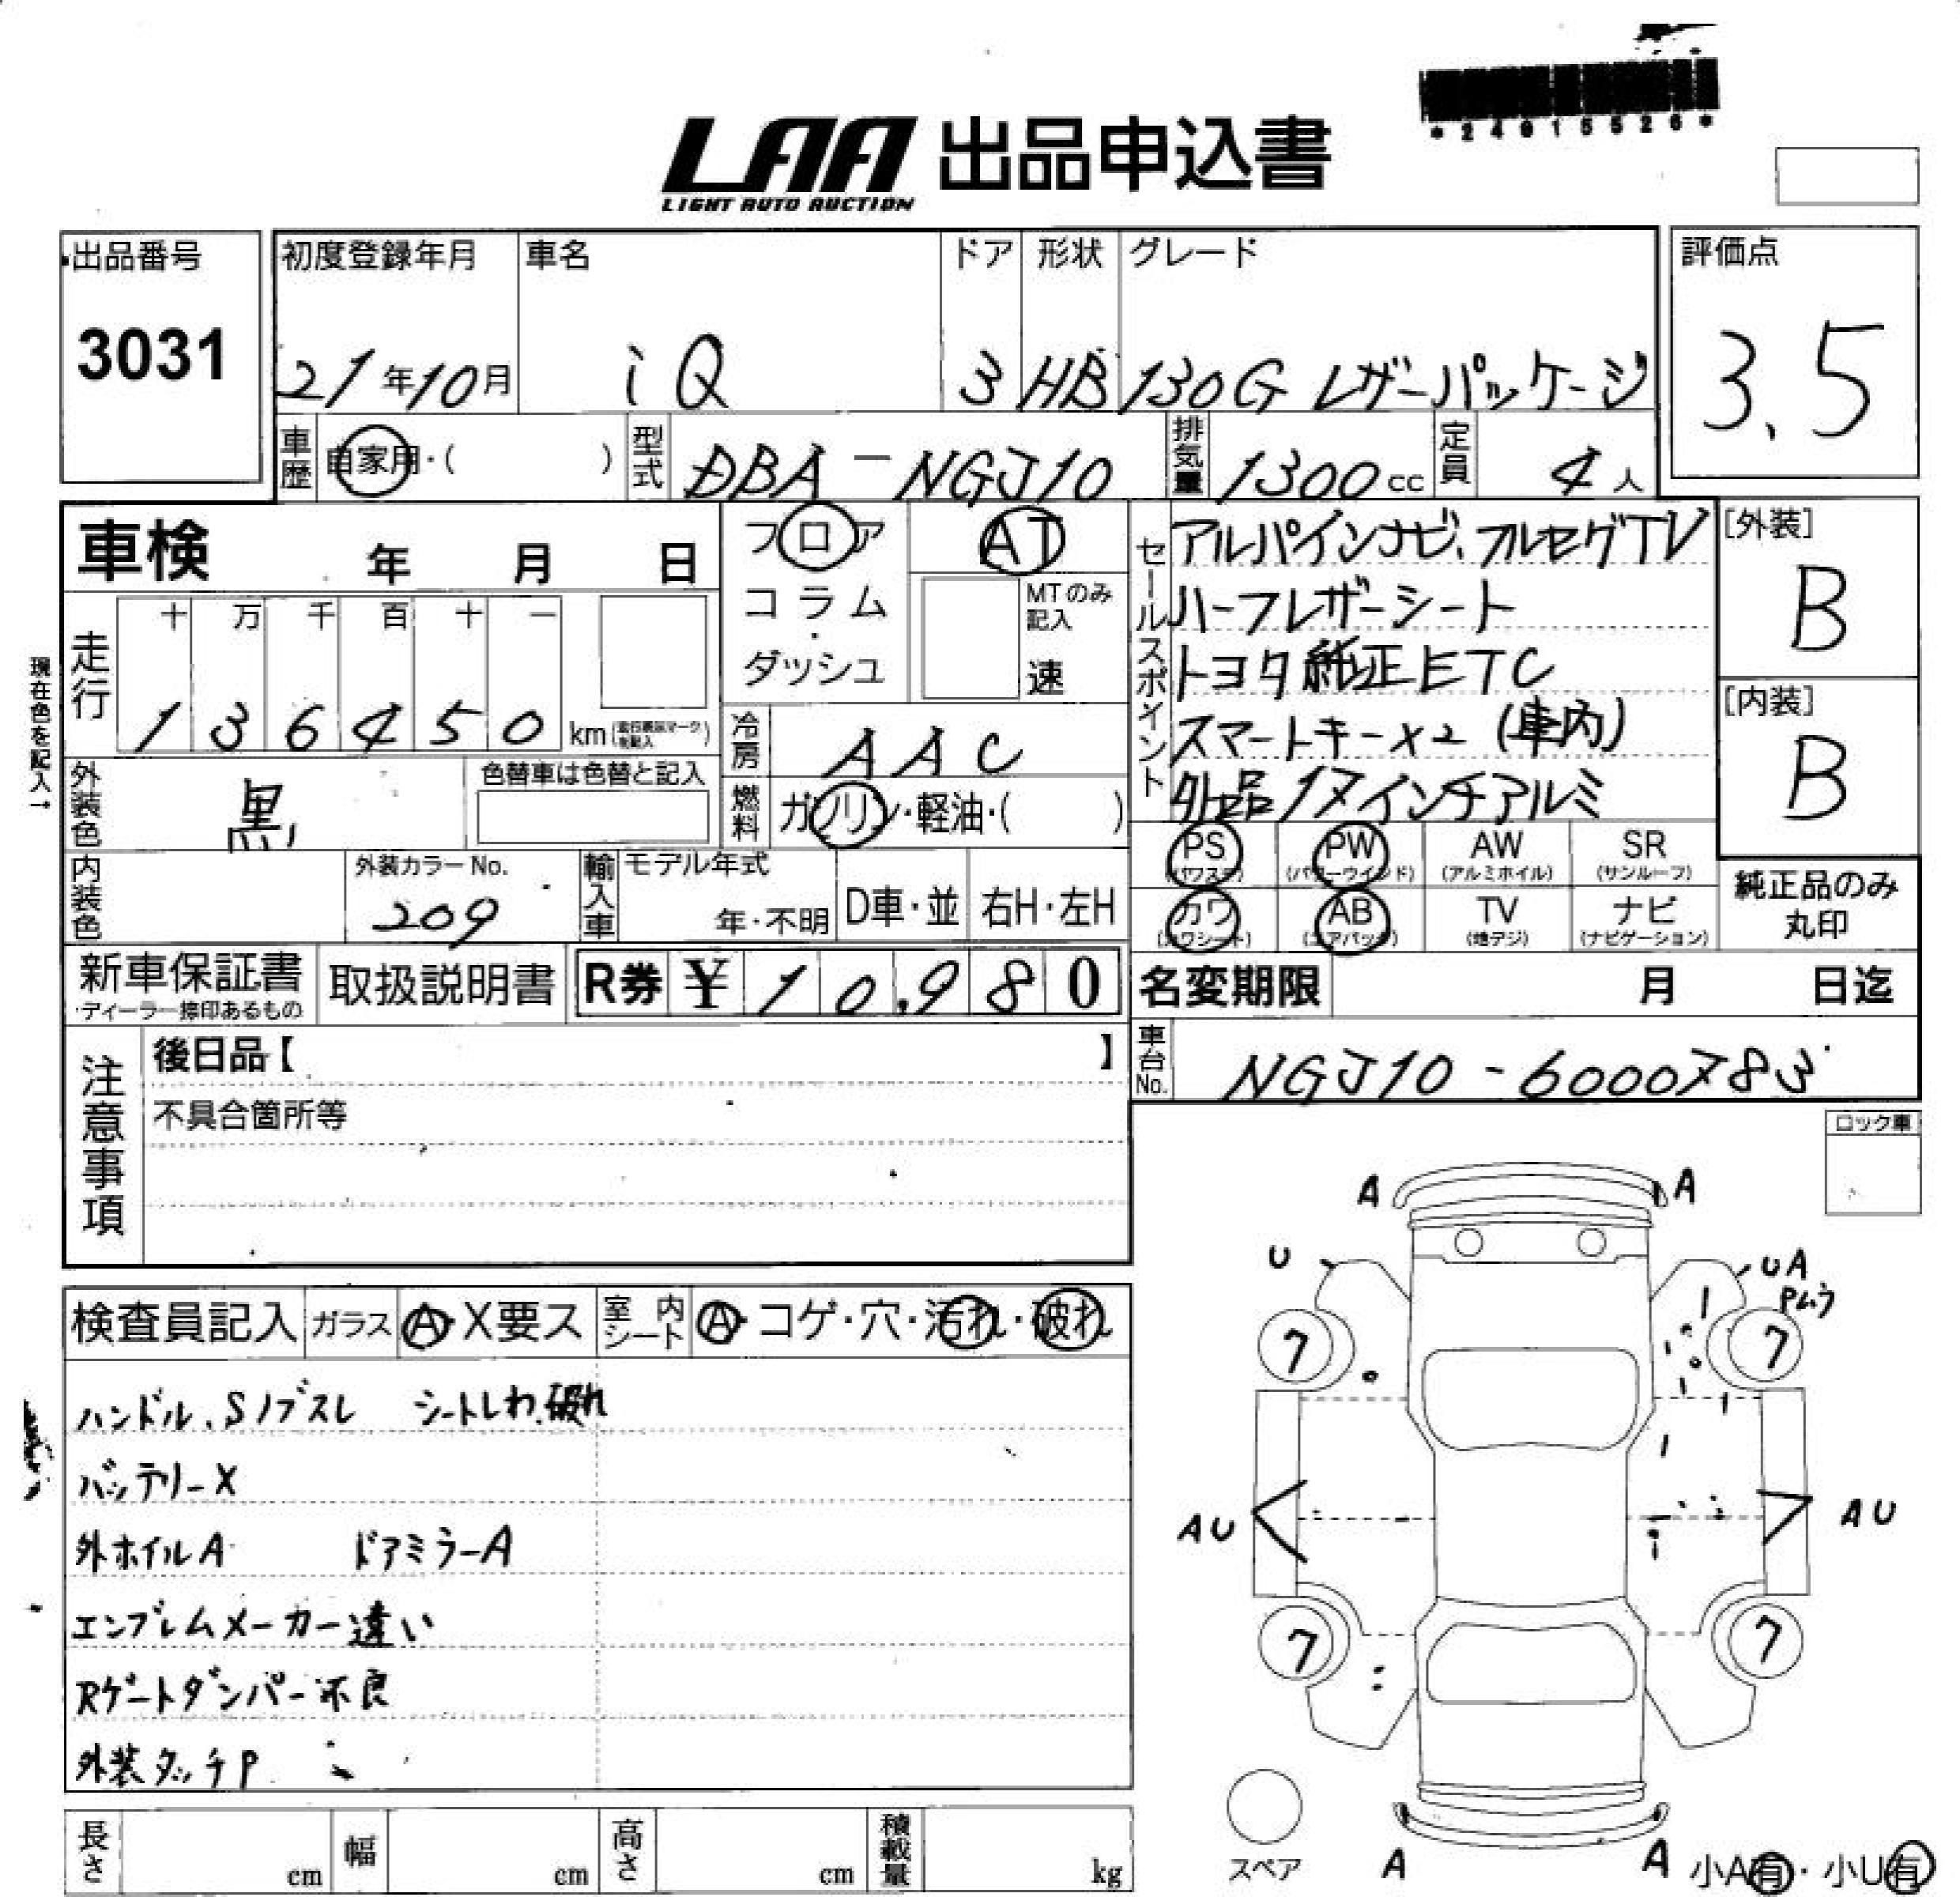 *24915526*
LAA 出品申込書
LIGHT AUTO AUCTION
出品番号
3031
初度登録年月
21年10月
車名
iQ
ドア
3
形状
HB
グレード
130G レザーパッケージ
評価点
3.5
車歴
自家用・( )
型式
DBA-NGJ10
排気量
1300cc
定員
4人
車検 年 月 日
現在色を記入→
走行
十 万 千 百 十 一
1 3 6 4 5 0 km
フロア
コラム
・
ダッシュ
AT
MTのみ
記入
速
冷房
AAC
燃料
ガソリン・軽油・( )
外装色
黒
色替車は色替と記入
内装色
外装カラーNo.
209
輸入車
モデル年式
年・不明
D車・並
右H・左H
新車保証書
取扱説明書
R券 ¥ 10,980
セールスポイント
アルパインナビ、フルセグTV
ハーフレザーシート
トヨタ純正ETC
スマートキー×2 (車内)
外品17インチアルミ
[外装]
B
[内装]
B
PS
(パワステ)
PW
(パワーウインド)
AW
(アルミホイル)
SR
(サンルーフ)
カワ
(カワシート)
AB
(エアバック)
TV
(地デジ)
ナビ
(ナビゲーション)
純正品のみ
丸印
名変期限 月 日迄
車台No.
NGJ10-6000783
注意事項
後日品【 】
不具合箇所等
ロック車
検査員記入
ガラス
A・X要ス
室内
シート
A・コゲ・穴・汚れ・破れ
ハンドル、Sノブスレ シートしわ、破れ
バッテリーX
外ホイルA ドアミラーA
エンブレムメーカー違い
Rゲートダンパー不良
外装タッチP
A A
U
UA
Pムラ
7 7
AU AU
7 7
スペア
A A
小A有・小U有
長さ cm
幅 cm
高さ cm
積載量 kg